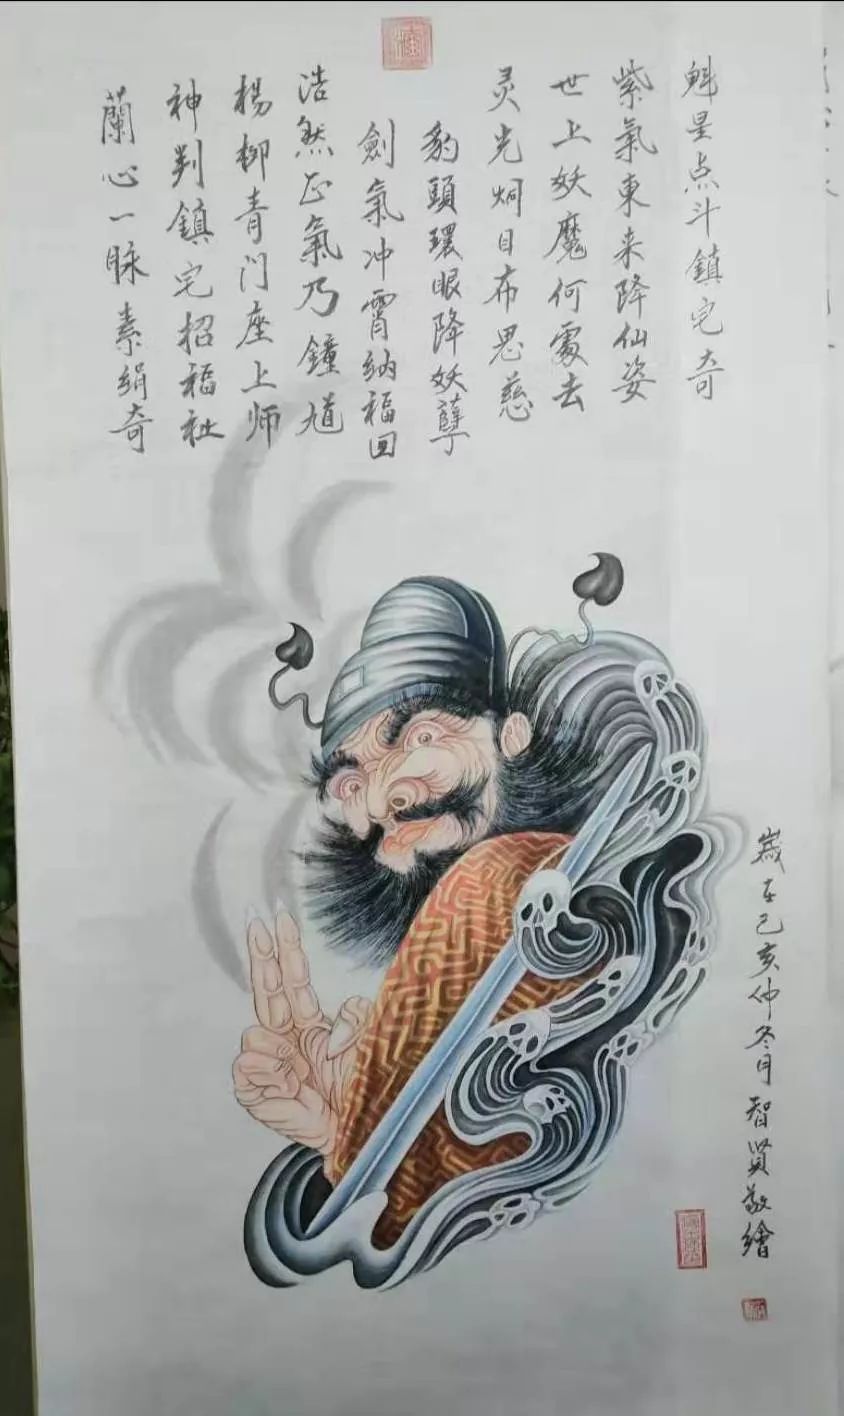 魁星点斗鎮宅奇
紫氣東来降仙姿
世上妖魔何處去
灵光炯目布恩慈
豹頭環眼降妖孽
劍氣冲霄纳福回
浩然正氣乃鐘馗
楊柳青门座上师
神判鎮宅招福祉
蘭心一脉素絹奇
歲在己亥仲冬月智賢敬繪